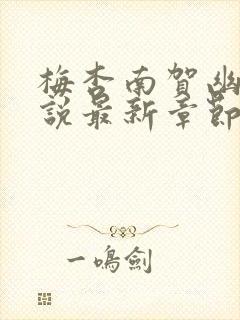 梅杏南賀幽
說最新章節
一鳴劍